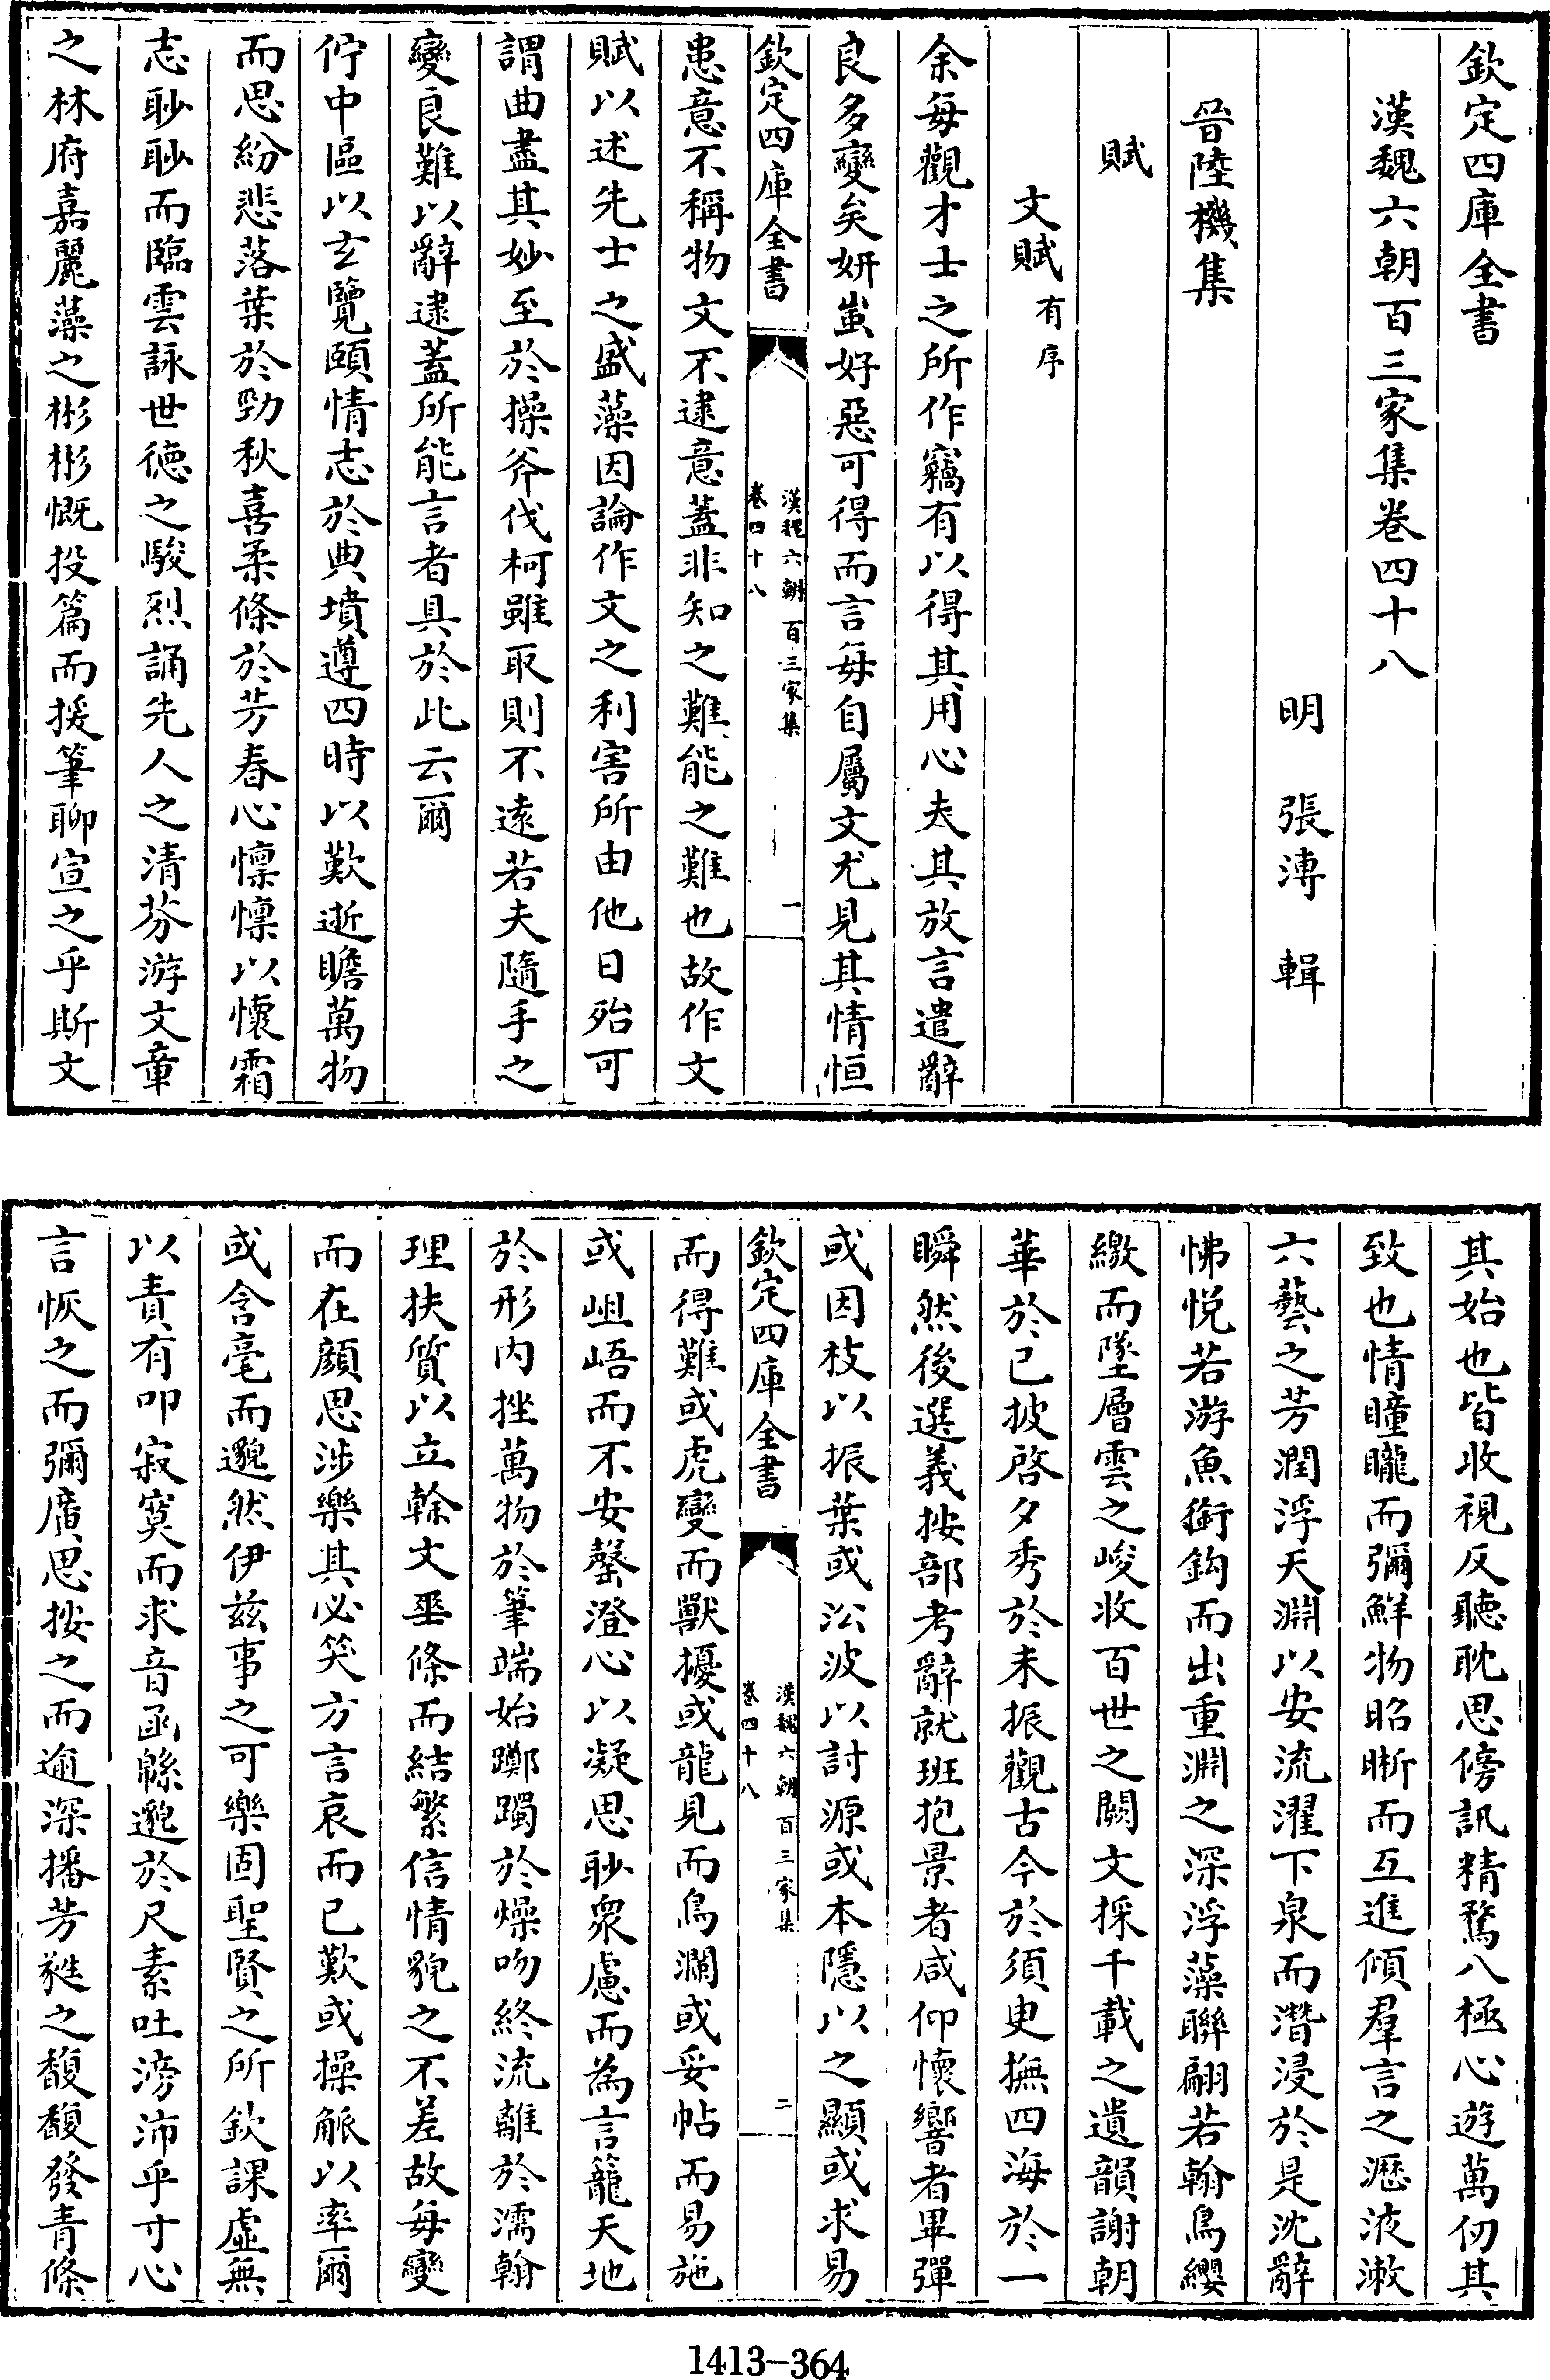 欽定四庫全書
漢魏六朝百三家集卷四十八
明 張溥 輯
晉陸機集
賦
文賦有序
余每觀才士之所作竊有以得其用心夫其放言遣辭
良多變矣妍蚩好惡可得而言每自屬文尤見其情恒
欽定四庫全書
漢魏六朝百三家集
卷四十八
一
患意不稱物文不逮意蓋非知之難能之難也故作文
賦以述先士之盛藻因論作文之利害所由他日殆可
謂曲盡其妙至於操斧伐柯雖取則不遠若夫隨手之
變良難以辭逮蓋所能言者具於此云爾
佇中區以玄覽頤情志於典墳遵四時以歎逝瞻萬物
而思紛悲落葉於勁秋喜柔條於芳春心懍懍以懷霜
志眇眇而臨雲詠世徳之駿烈誦先人之清芬游文章
之林府嘉麗藻之彬彬慨投篇而援筆聊宣之乎斯文
其始也皆收視反聽耽思傍訊精騖八極心遊萬仞其
致也情曈曨而彌鮮物昭晣而互進傾羣言之瀝液漱
六藝之芳潤浮天淵以安流濯下泉而潛浸於是沈辭
怫悦若游魚銜鈎而出重淵之深浮藻聯翩若翰鳥纓
繳而墜層雲之峻收百世之闕文採千載之遺韻謝朝
華於已披啓夕秀於未振觀古今於須臾撫四海於一
瞬然後選義按部考辭就班抱景者咸仰懷響者畢彈
或因枝以振葉或沿波以討源或本隱以之顯或求易
欽定四庫全書
漢魏六朝百三家集
卷四十八
二
而得難或虎變而獸擾或龍見而鳥瀾或妥帖而易施
或岨峿而不安罄澄心以凝思眇衆慮而為言籠天地
於形内挫萬物於筆端始躑躅於燥吻終流離於濡翰
理扶質以立榦文垂條而結繁信情貌之不差故每變
而在顔思涉樂其必笑方言哀而已歎或操觚以率爾
或含毫而邈然伊兹事之可樂固聖賢之所欽課虛無
以責有叩寂寞而求音函緜邈於尺素吐滂沛乎寸心
言恢之而彌廣思按之而逾深播芳蕤之馥馥發青條
1413-364